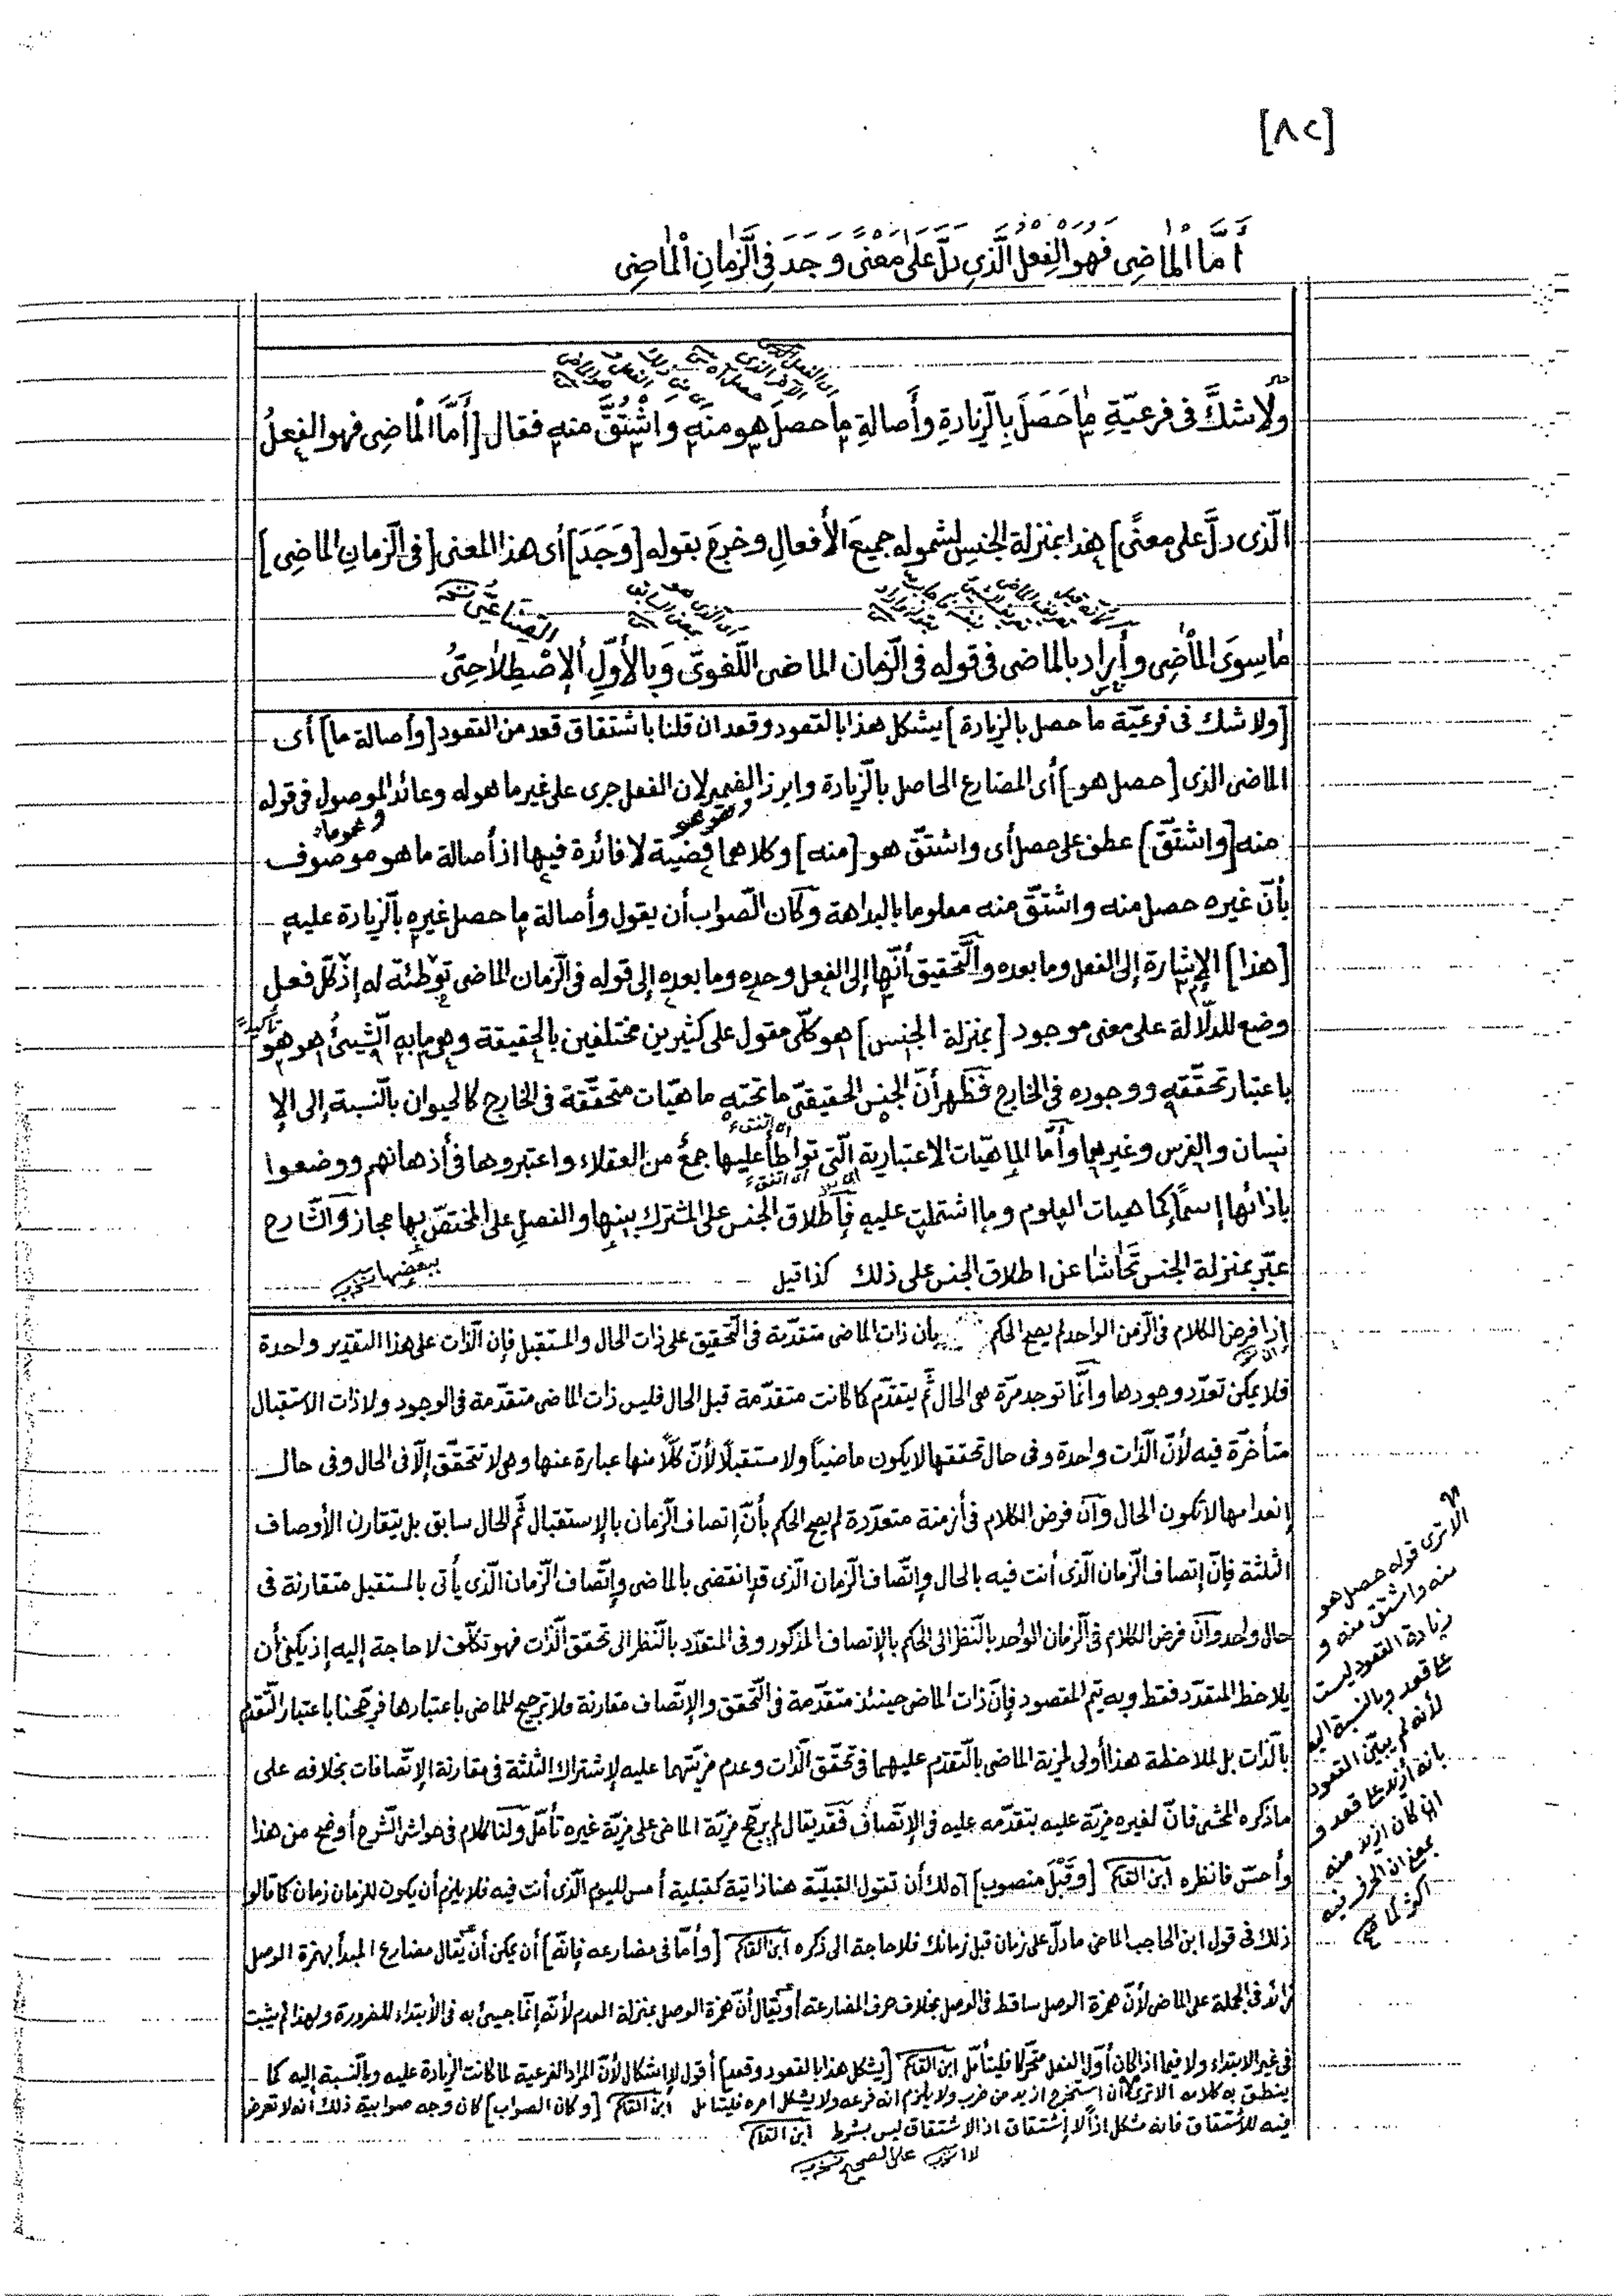 [٨٢]
أَمَّا الْمَاضِى فَهُوَ الْفِعْلُ الَّذِى دَلَّ عَلَى مَعْنًى وَجَدَ فِى الزَّمَانِ الْمَاضِى
ولا شكَّ فى فرعيّةِ مَا حَصَلَ بِالزِّيادةِ وأَصالةِ ما حصلَ هو منه وَاشْتُقَّ منه فقال [أَمَّا الْمَاضِى فهو الفعلُ
الّذى دلَّ على معنًى] هذا بمنزلة الجنس لشموله جميعَ الأَفعالِ وخرجَ بقوله [وَجَدَ] أى هذا المعنى [فى الزّمانِ الماضِى]
مَا سِوَى الْمَاضِى وأَراد بالماضى فى قوله فى الزّمان الماضى اللّغوىّ وَبِالأَوّلِ الإِصْطِلَاحِىُّ
الصّناعىّ نسخة
[ولا شك فى فرعيّة ما حصل بالزيادة] يشكل هذا بالقعود وقعد ان قلنا باشتقاق قعد من القعود [وأصالة ما] أى
الماضى الذى [حصل هو] أى المضارع الحاصل بالزّيادة وابرز الضمير لان الفعل جرى على غير ما هو له وعائد الموصول فى قوله
منه [واشتقّ] عطف على حصل أى واشتقّ هو [منه] وكلاهما قضية لا فائدة فيها اذ أصالة ما هو موصوف
بأنّ غيره حصل منه واشتقّ منه معلوما بالبداهة وكان الصّواب أن يقول وأصالة ما حصل غيره بالزيادة عليه
[هذا] الإشارة إلى الفعل وما بعده والتّحقيق أنّها إلى الفعل وحده وما بعده إلى قوله فى الزّمان الماضى توطئة له إذ كلّ فعل
وضع للدّلالة على معنى موجود [بمنزلة الجنس] هو كلّى مقول على كثيرين مختلفين بالحقيقة وهى ما به الشيئ هو هو
باعتبار تحقّقه ووجوده فى الخارج فظهر أنّ الجنس الحقيقىّ ما تحته ماهيّات متحقّقة فى الخارج كالحيوان بالنّسبة إلى الإ
نسان والفرس وغيرهما وأمّا الماهيّات الاعتبارية الّتى تواطأ عليها جمعٌ من العقلاء واعتبروها فى أذهانهم ووضعوا
بإذائها إسمًا كماهيات العلوم وما اشتملت عليه فإطلاق الجنس على المشترك بينها والفصل على المختصّ بها مجاز والشّارح
عبّر بمنزلة الجنس تحاشا عن اطلاق الجنس على ذلك كذا قيل
ببعضها
إذا فرض الكلام فى الزّمن الواحد لم يصح الحكم بان ذات الماضى متقدّمة فى التّحقيق على ذات الحال والمستقبل فإن الذّات على هذا التقدير واحدة
فلا يمكن تعدّد وجودها وانّما توجد مرّة هى الحال ثمّ يتقدّم كما كانت متقدّمة قبل الحال فليس ذات الماضى متقدّمة فى الوجود ولا ذات الاستقبال
متأخرّة فيه لأنّ الذّات واحدة وفى حال تحققها لا يكون ماضياً ولا مستقبلًا لأنّ كلًّا منها عبارة عنها وهى لا تتحقّق إلّا فى الحال وفى حال
إنعدامها لا تكون الحال وان فرض الكلام فى أزمنة متعدّدة لم يصح الحكم بأنّ إتصاف الزّمان بالإستقبال ثمّ الحال سابق بل يتقارن الأوصاف
الثلثة فإنّ إتصاف الزّمان الّذى أنت فيه بالحال وإتّصاف الزّمان الّذى قد انقضى بالماضى وإتّصاف الزّمان الّذى يأتى بالمستقبل متقارنة فى
حال واحد وان فرض الكلام فى الزّمان الواحد بالنّظر الى الحكم بالإتصاف المذكور وفى المتعدّد بالنّظر الى تحقق الذّات فهو تكلّف لا حاجة إليه إذ يكفى أن
يلاحظ المتعدّد فقط وبه يتم المقصود فإنّ ذات الماضى حينئذ متقدّمة فى التّحقق والإتّصاف مقارنة ولا ترجيح للماضى باعتبارها فرجّحنا باعتبار التّقدم
بالذّات بل ملاحظة هذا أولى لمزية الماضى بالتّقدم عليهما فى تحقّق الذّات وعدم مزيّتهما عليه لإشتراك الثلثة فى مقارنة الإتّصافات بخلافه على
ما ذكره المحشى فانّ لغيره مزيّة عليه بتقدّمه عليه فى الإتّصاف فقد يقال لم يرجّح مزيّة الماضى على مزيّة غيره تأمّل ولنا كلام فى حواش الشّرح أوضح من هذا
وأحسن فانظره ابن القاسم [وقبل منصوب] آه لك أن تقول القبليّة هنا ذاتية كقبلية أمس لليوم الّذى أنت فيه فلا يلزم أن يكون للزمان زمان كما قالوا
ذلك فى قول ابن الحاجب الماضى ما دلّ على زمان قبل زمانك فلا حاجة الى ذكره ابن القاسم [وأمّا فى مضارعه فإنّه] أن يمكن أن يقال مضارع المبدأ بهمزة الوصل
زائد فى الجملة على الماضى لأنّ همزة الوصل ساقط فى الوصل بخلاف حرف المضارعة أو يقال أنّ همزة الوصل بمنزلة العدم لأنّه إنّما جيئ به فى الأبتداء للضرورة ولهذا لم يثبت
فى غير الابتداء ولا فيما اذا كان أوّل الفعل متحرّكا فليتأمّل ابن القاسم [يشكل هذا بالقعود وقعد] أقول لا إشكال لأنّ المراد الفرعية لما كانت الزّيادة عليه وبالنّسبة إليه كما
ينطق به كلامه الا ترى أن استخرج ازيد من خرج ولا يلزم انه فرعه ولا يشكل امره فليتامل ابن القاسم [وكان الصواب] كان وجه صوابية ذلك انه لا تعرض
فيه للأشتقاق فانه مشكل اذ لا إشتقاق اذ الاشتقاق ليس بشرط ابن القاسم
على الصحيح
الا ترى قوله حصل هو
منه واشتق منه و
زيادة القعود ليست
على قعد وبالنسبة اليه
لأنه لم يبيّن القعود
بانه أزيد على قعد و
ان كان ازيد منه
بمعنى ان الحرف فيه
اكثر